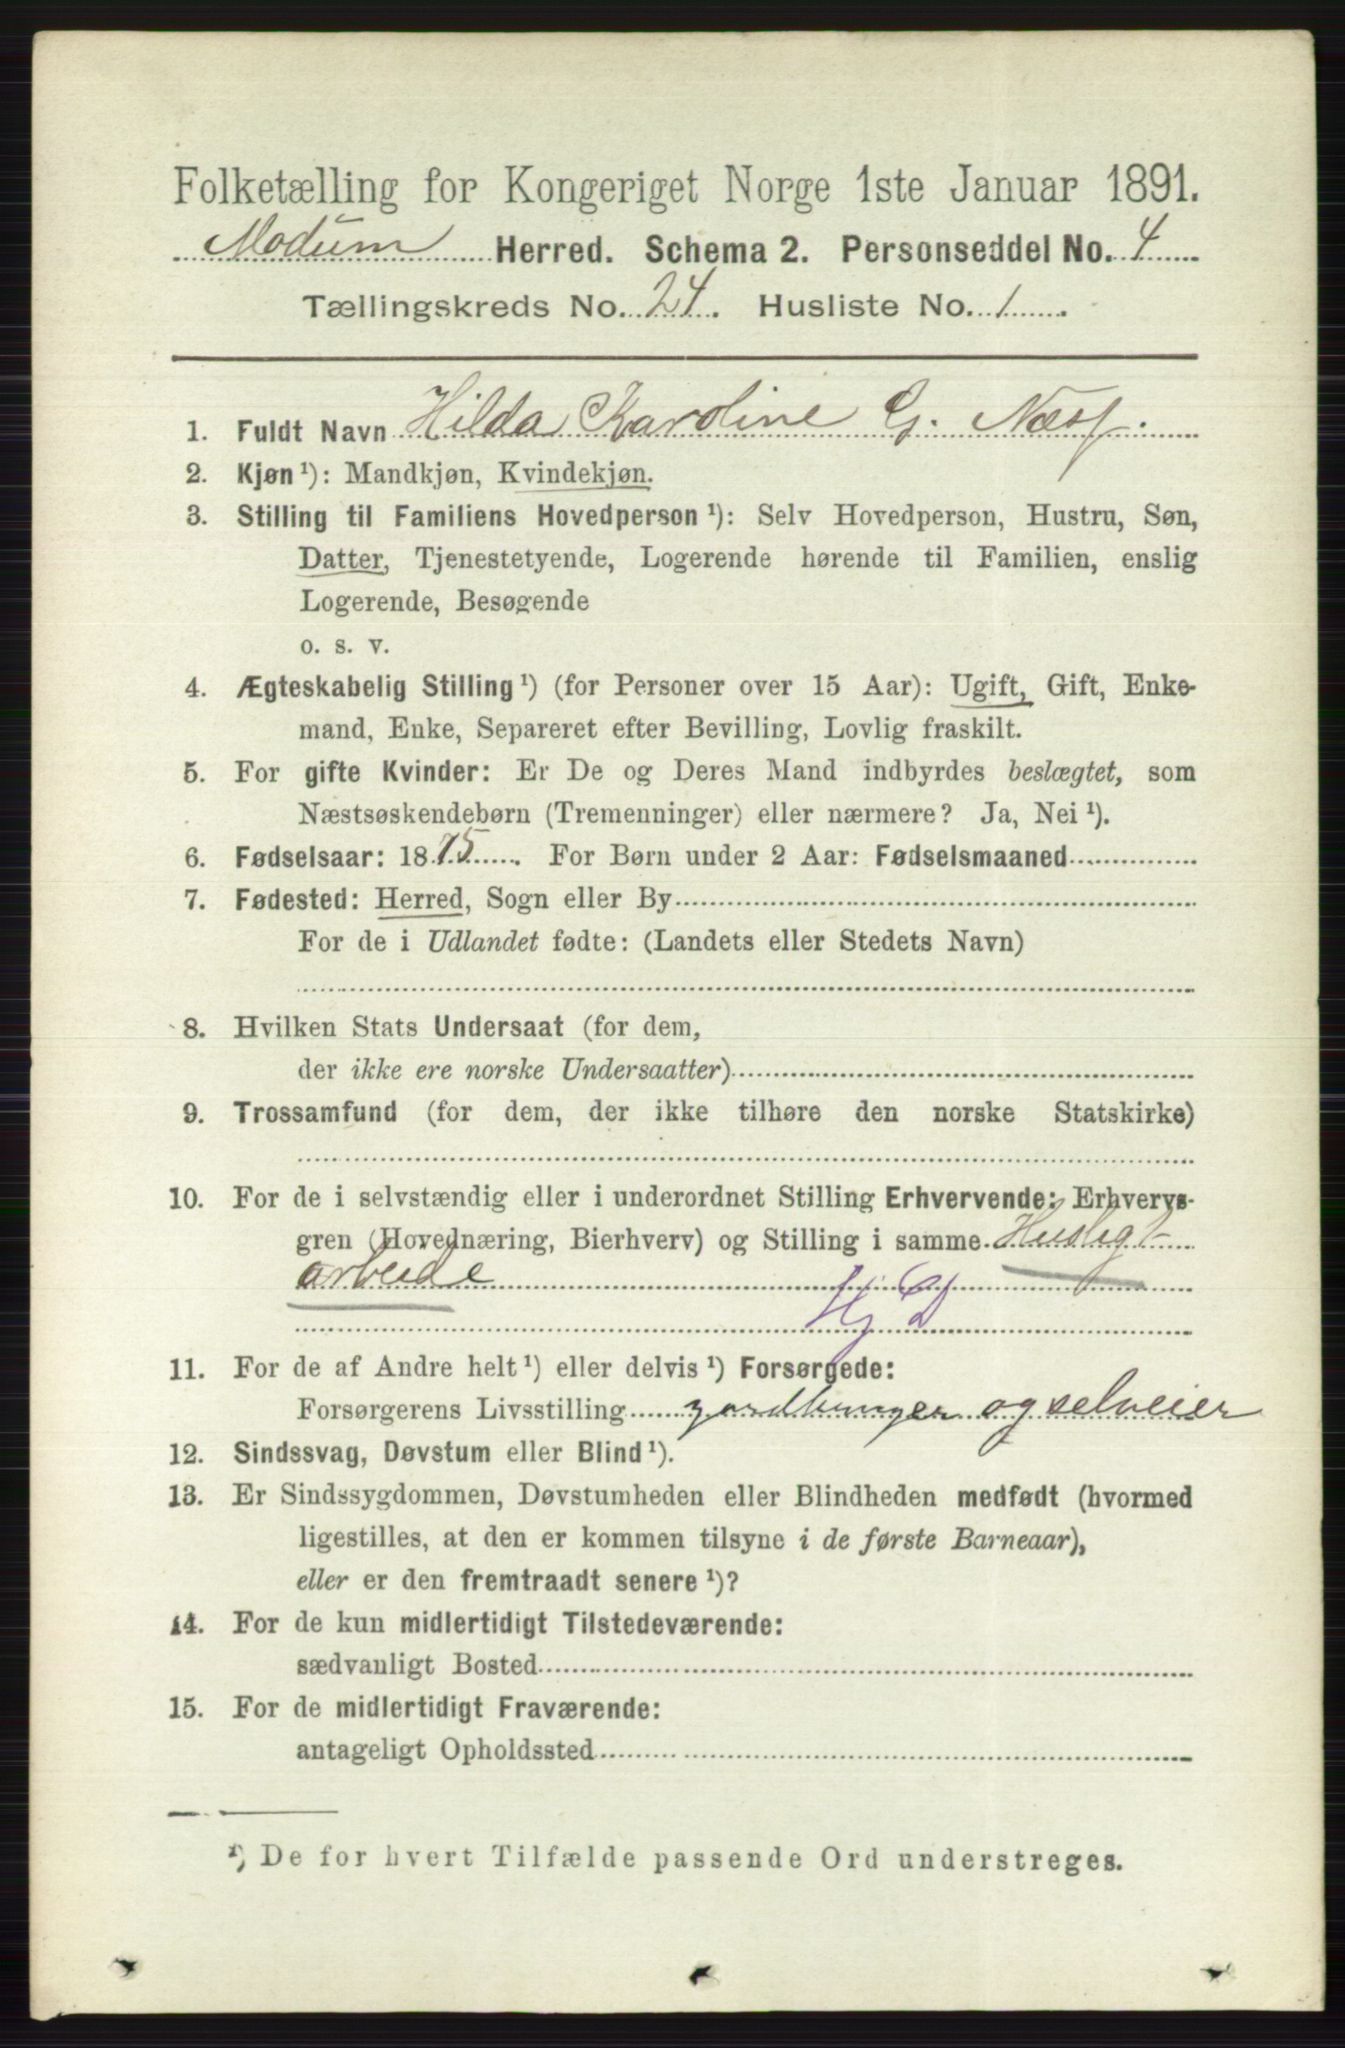 Folketælling for Kongeriget Norge 1ste Januar 1891.
Modum Herred. Schema 2. Personseddel No. 4
Tællingskreds No. 24. Husliste No. 1
1. Fuldt Navn Hilda Karoline G. Næss.
2. Kjøn ¹): Mandkjøn, Kvindekjøn.
3. Stilling til Familiens Hovedperson ¹): Selv Hovedperson, Hustru, Søn,
Datter, Tjenestetyende, Logerende hørende til Familien, enslig
Logerende, Besøgende
o. s. v.
4. Ægteskabelig Stilling ¹) (for Personer over 15 Aar): Ugift, Gift, Enke-
mand, Enke, Separeret efter Bevilling, Lovlig fraskilt.
5. For gifte Kvinder: Er De og Deres Mand indbyrdes beslægtet, som
Næstsøskendebørn (Tremenninger) eller nærmere? Ja, Nei ¹).
6. Fødselsaar: 1875. For Børn under 2 Aar: Fødselsmaaned
7. Fødested: Herred, Sogn eller By
For de i Udlandet fødte: (Landets eller Stedets Navn)
8. Hvilken Stats Undersaat (for dem,
der ikke ere norske Undersaatter)
9. Trossamfund (for dem, der ikke tilhøre den norske Statskirke)
10. For de i selvstændig eller i underordnet Stilling Erhvervende: Erhvervs-
gren (Hovednæring, Bierhverv) og Stilling i samme. Husligt
arbeide
Hj D
11. For de af Andre helt ¹) eller delvis ¹) Forsørgede:
Forsørgerens Livsstilling gardbruger og selveier
12. Sindssvag, Døvstum eller Blind ¹).
13. Er Sindssygdommen, Døvstumheden eller Blindheden medfødt (hvormed
ligestilles, at den er kommen tilsyne i de første Barneaar),
eller er den fremtraadt senere ¹)?
14. For de kun midlertidigt Tilstedeværende:
sædvanligt Bosted
15. For de midlertidigt Fraværende:
antageligt Opholdssted
¹) De for hvert Tilfælde passende Ord understreges.